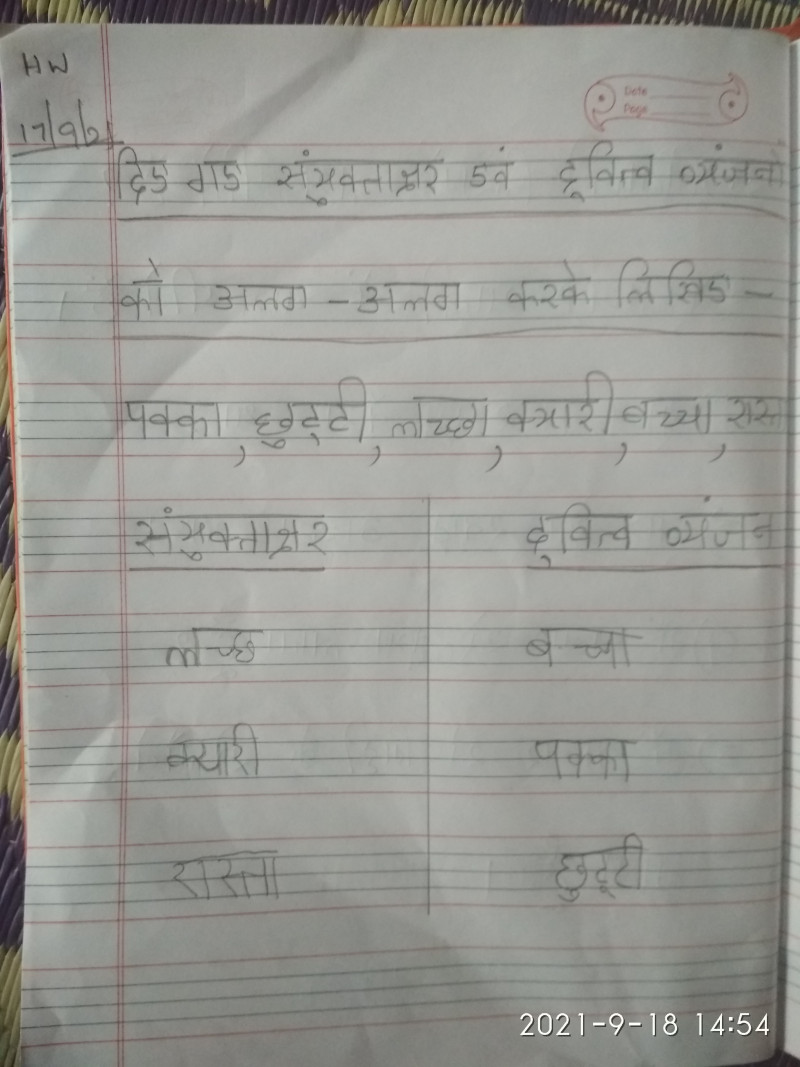 HW
Date
Page
17/9/21
दिए गए संयुक्ताक्षर एवं द्वित्व व्यंजनो
को अलग - अलग करके लिखिए -
पक्का, छुट्टी, लच्छा, क्यारी, बच्चा, रास्ता
संयुक्ताक्षर द्वित्व व्यंजन
लच्छ बच्चा
क्यारी पक्का
रास्ता छुट्टी
2021-9-18 14:54